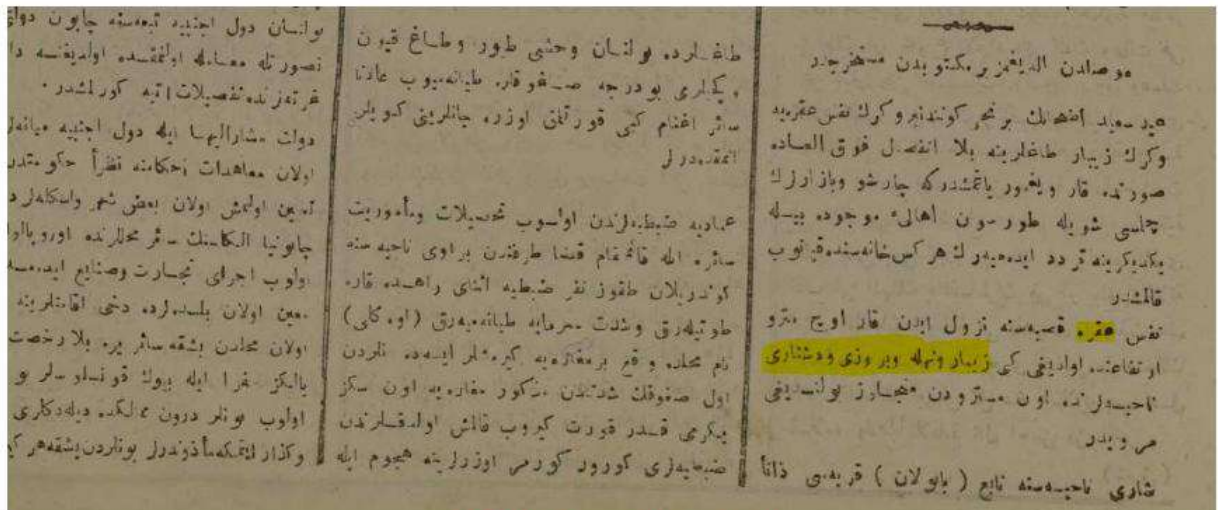 موصلدن الديغمز بر مكتوبدن مستخرجدر
عيد سعيد اضحانك برنجى كونندنبرو كرك نفس عقره‌يه
وكرك زيبار طاغلرينه بلا انفصال فوق العاده
صورتده قار ويغمور ياغمشدركه چارشو وبازارلرك
جمله‌سى شويله طورسون اهالئ موجوده بيله
يكديكرينه تردد ايده‌ميه‌رك هركس خانه‌سنده قپانوب
قالمشدر
نفس عقره قصبه‌سنه نزول ايدن قار اوچ مترو
ارتفاعنده اولديغى كبى زيبار ونهله وبروزى ودشتارى
ناحيه‌لرنده اون مترودن متجاوز بولنديغى
مرويدر
شارى ناحيه‌سنه تابع ( بابولان ) قريه‌سى ذاتا
طاغلرده بولنان وحشى طيور وطاغ قيون
وكچيلرى بو درجه صغوقلره طيانه‌ميوب عادتا
سائر اغنام كبى قورتلمق اوزره جانلرينى كويلره
اتمقده‌درلر
عماديه ضبطيه‌لرندن اولوب تحصيلات ومأموريت
سائره ايله قائمقام قضا طرفندن براوى ناحيه‌سنه
كوندريلان طقوز نفر ضبطيه اثناى راهده قاره
طوتيله‌رق وشدت سرمايه طيانه‌ميه‌رق (اوه كلى)
نام محلده واقع بر مغاره‌يه كيرمشلر ايسه‌ده بونلردن
اول صغوقك شدتندن مذكور مغاره‌يه اون سكز
يكرمى قدر قورت كيروب قالمش اولدقلرندن
ضبطيه‌لرى كورور كورمز اوزرلرينه هجوم ايله
بولنان دول اجنبيه تبعه‌سنه چاپون دولتى
نصورتله معامله اولنمقده اولديغنه دائر
غزته‌لرنده تفصيلات آتيه كورلمشدر .
دولت مشاراليها ايله دول اجنبيه ميانه‌لرنده
اولان معاهدات احكامنه نظراً حكومتدن
تعيين اولنمش اولان بعض شهر واسكله‌لردن
چاپونيا الكاسنك سائر محللرنده اوروپالولر
اولوب اجراى تجارت وصنايع ايده‌مه
معين اولان بلده‌لرده دخى اقامتلرينه
اولان محلدن بشقه سائر يره بلا رخصت
يالكز سفرا ايله بيوك قونسلوسلر بو
اولوب بونلر درون مملكتده ديله‌دكلرى
وكذار ايتمكه مأذوندرلر بونلردن بشقه هر كيم